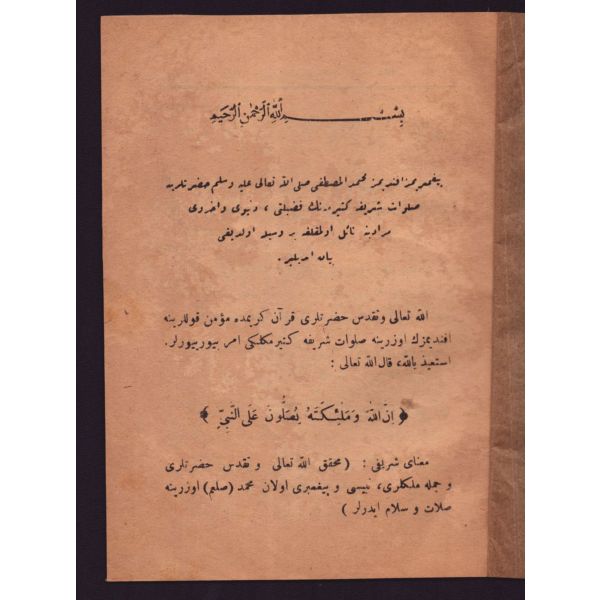 بسم الله الرحمن الرحيم
پيغمبريمز افنديمز محمد المصطفى صلى الله تعالى عليه وسلم حضرتلرينه
صلوات شريفه كتيرمه نك فضيلتى ، دنيوى واخروى
مرادينه نائل اولمقلغه بر وسيله اولديغى
بيان ايديلير .
الله تعالى وتقدس حضرتلرى قرآن كريمده مؤمن قوللرينه
افنديمزك اوزرينه صلوات شريفه كتيرمكلكى امر بيوريورلر.
استعيذ بالله، قال الله تعالى :
﴿ اِنَّ اللّٰهَ وَمَلٰٓئِكَتَهُ يُصَلُّونَ عَلَى النَّبِىِّ ﴾
معناى شريفى : ( محقق الله تعالى و تقدس حضرتلرى
و جمله ملكلرى، نبيسى و پيغمبرى اولان محمد (صلعم) اوزرينه
صلات و سلام ايدرلر )